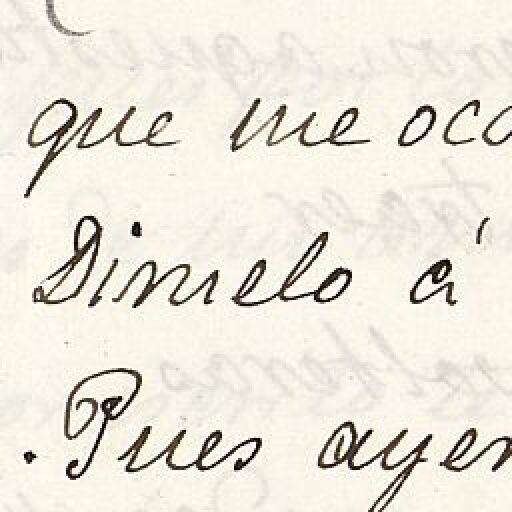 que me oca
Dimelo á
. Pues ayer